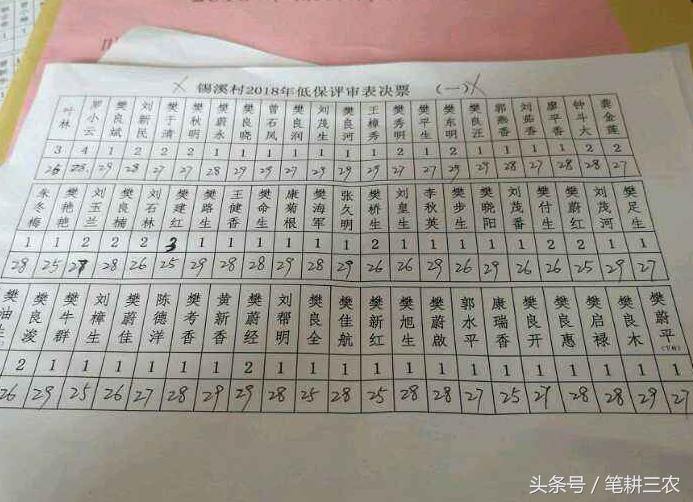 锡溪村2018年低保评审表决票 （一）
叶林 罗小云 樊良斌 刘新民 樊于清 樊秋明 樊蔚永 樊良晓 曾石凤 樊良润 刘茂生 樊良河 王樟秀 樊秀明 樊平生 樊东明 樊良汪 郭燕香 刘茹香 廖平香 钟斗大 龚金莲
3 4 1 2 2 2 1 1 1 1 1 1 1 2 1 2 1 1 1 1 2 2
26 28 29 28 27 27 28 29 29 29 29 29 27 27 27 29 29 28 27 28 28 27
朱冬梅 樊艳艳 刘玉兰 樊良楠 刘石林 樊建红 樊路生 王健香 樊命生 康菊根 樊海军 张久明 樊桥生 刘皇生 李秋英 樊步生 樊晓阳 刘茂番 樊付生 樊蔚红 刘茂河 樊足生
1 1 2 2 2 3 1 1 1 1 1 1 2 1 1 1 1 1 2 2 1 1
28 25 27 28 26 25 29 26 28 29 28 29 26 26 29 26 29 26 26 25 29 27
樊油生 樊良浚 樊牛群 刘樟生 樊蔚佳 陈德洋 樊考香 黄新香 樊蔚经 刘帮明 樊良全 樊佳航 樊新红 樊旭生 樊蔚啟 郭水平 康瑞香 樊良开 樊良惠 樊启禄 樊良木 樊蔚平
2 1 1 1 1 1 1 1 2 1 1 1 1 1 1 1 1 1 1 1 1 1
26 29 25 26 27 28 29 29 28 25 28 25 28 28 27 25 29 28 28 29 27
头条号／笔耕三农